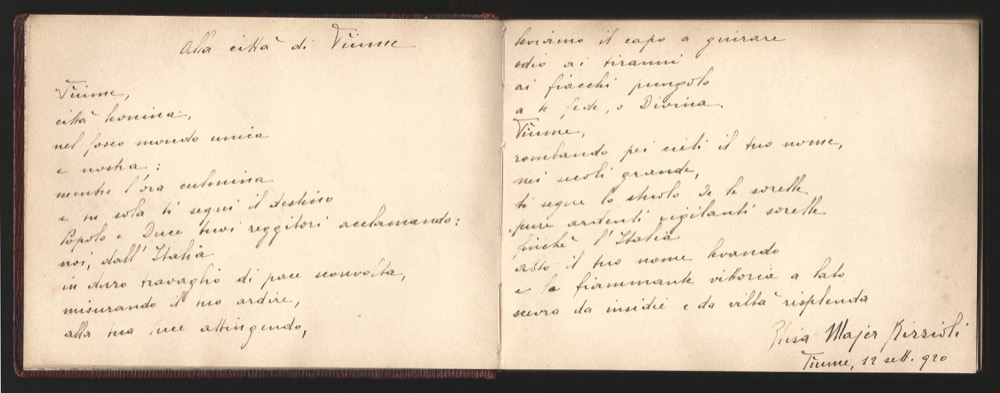 Alla città di Fiume
Fiume,
città leonina,
nel fosco mondo unica
e nostra:
mentre l'ora culmina
e tu sola ti segui il destino
Popolo e Duce tuoi reggitori acclamando:
noi, dall'Italia
in duro travaglio di pace sconvolta,
misurando il tuo ardire,
alla tua luce attingendo,
leviamo il capo a giurare
odio ai tiranni
ai fiacchi pungolo
a te fede, o Divina.
Fiume,
rombando pei cieli il tuo nome,
nei secoli grande,
ti segue lo stuolo de le sorelle
pure ardenti vigilanti sorelle
finchè l'Italia
alto il tuo nome levando
e la fiammante vittoria a lato
scevra da insidie e da viltà risplenda
Elisa Majer Rizzioli
Fiume, 12 sett. 920